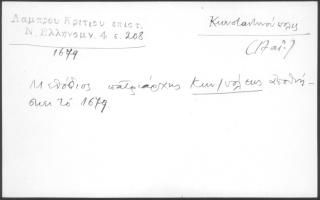 Λαμπρου Κριτιου επιστ.
Ν. Ελληνομν. 4 σ. 208
1679
Κωνσταντινούπολις
(Πατ.)
Μεθόδιος πατριάρχης Κων/πόλεως ἀποθνή-
σκει τὸ 1679